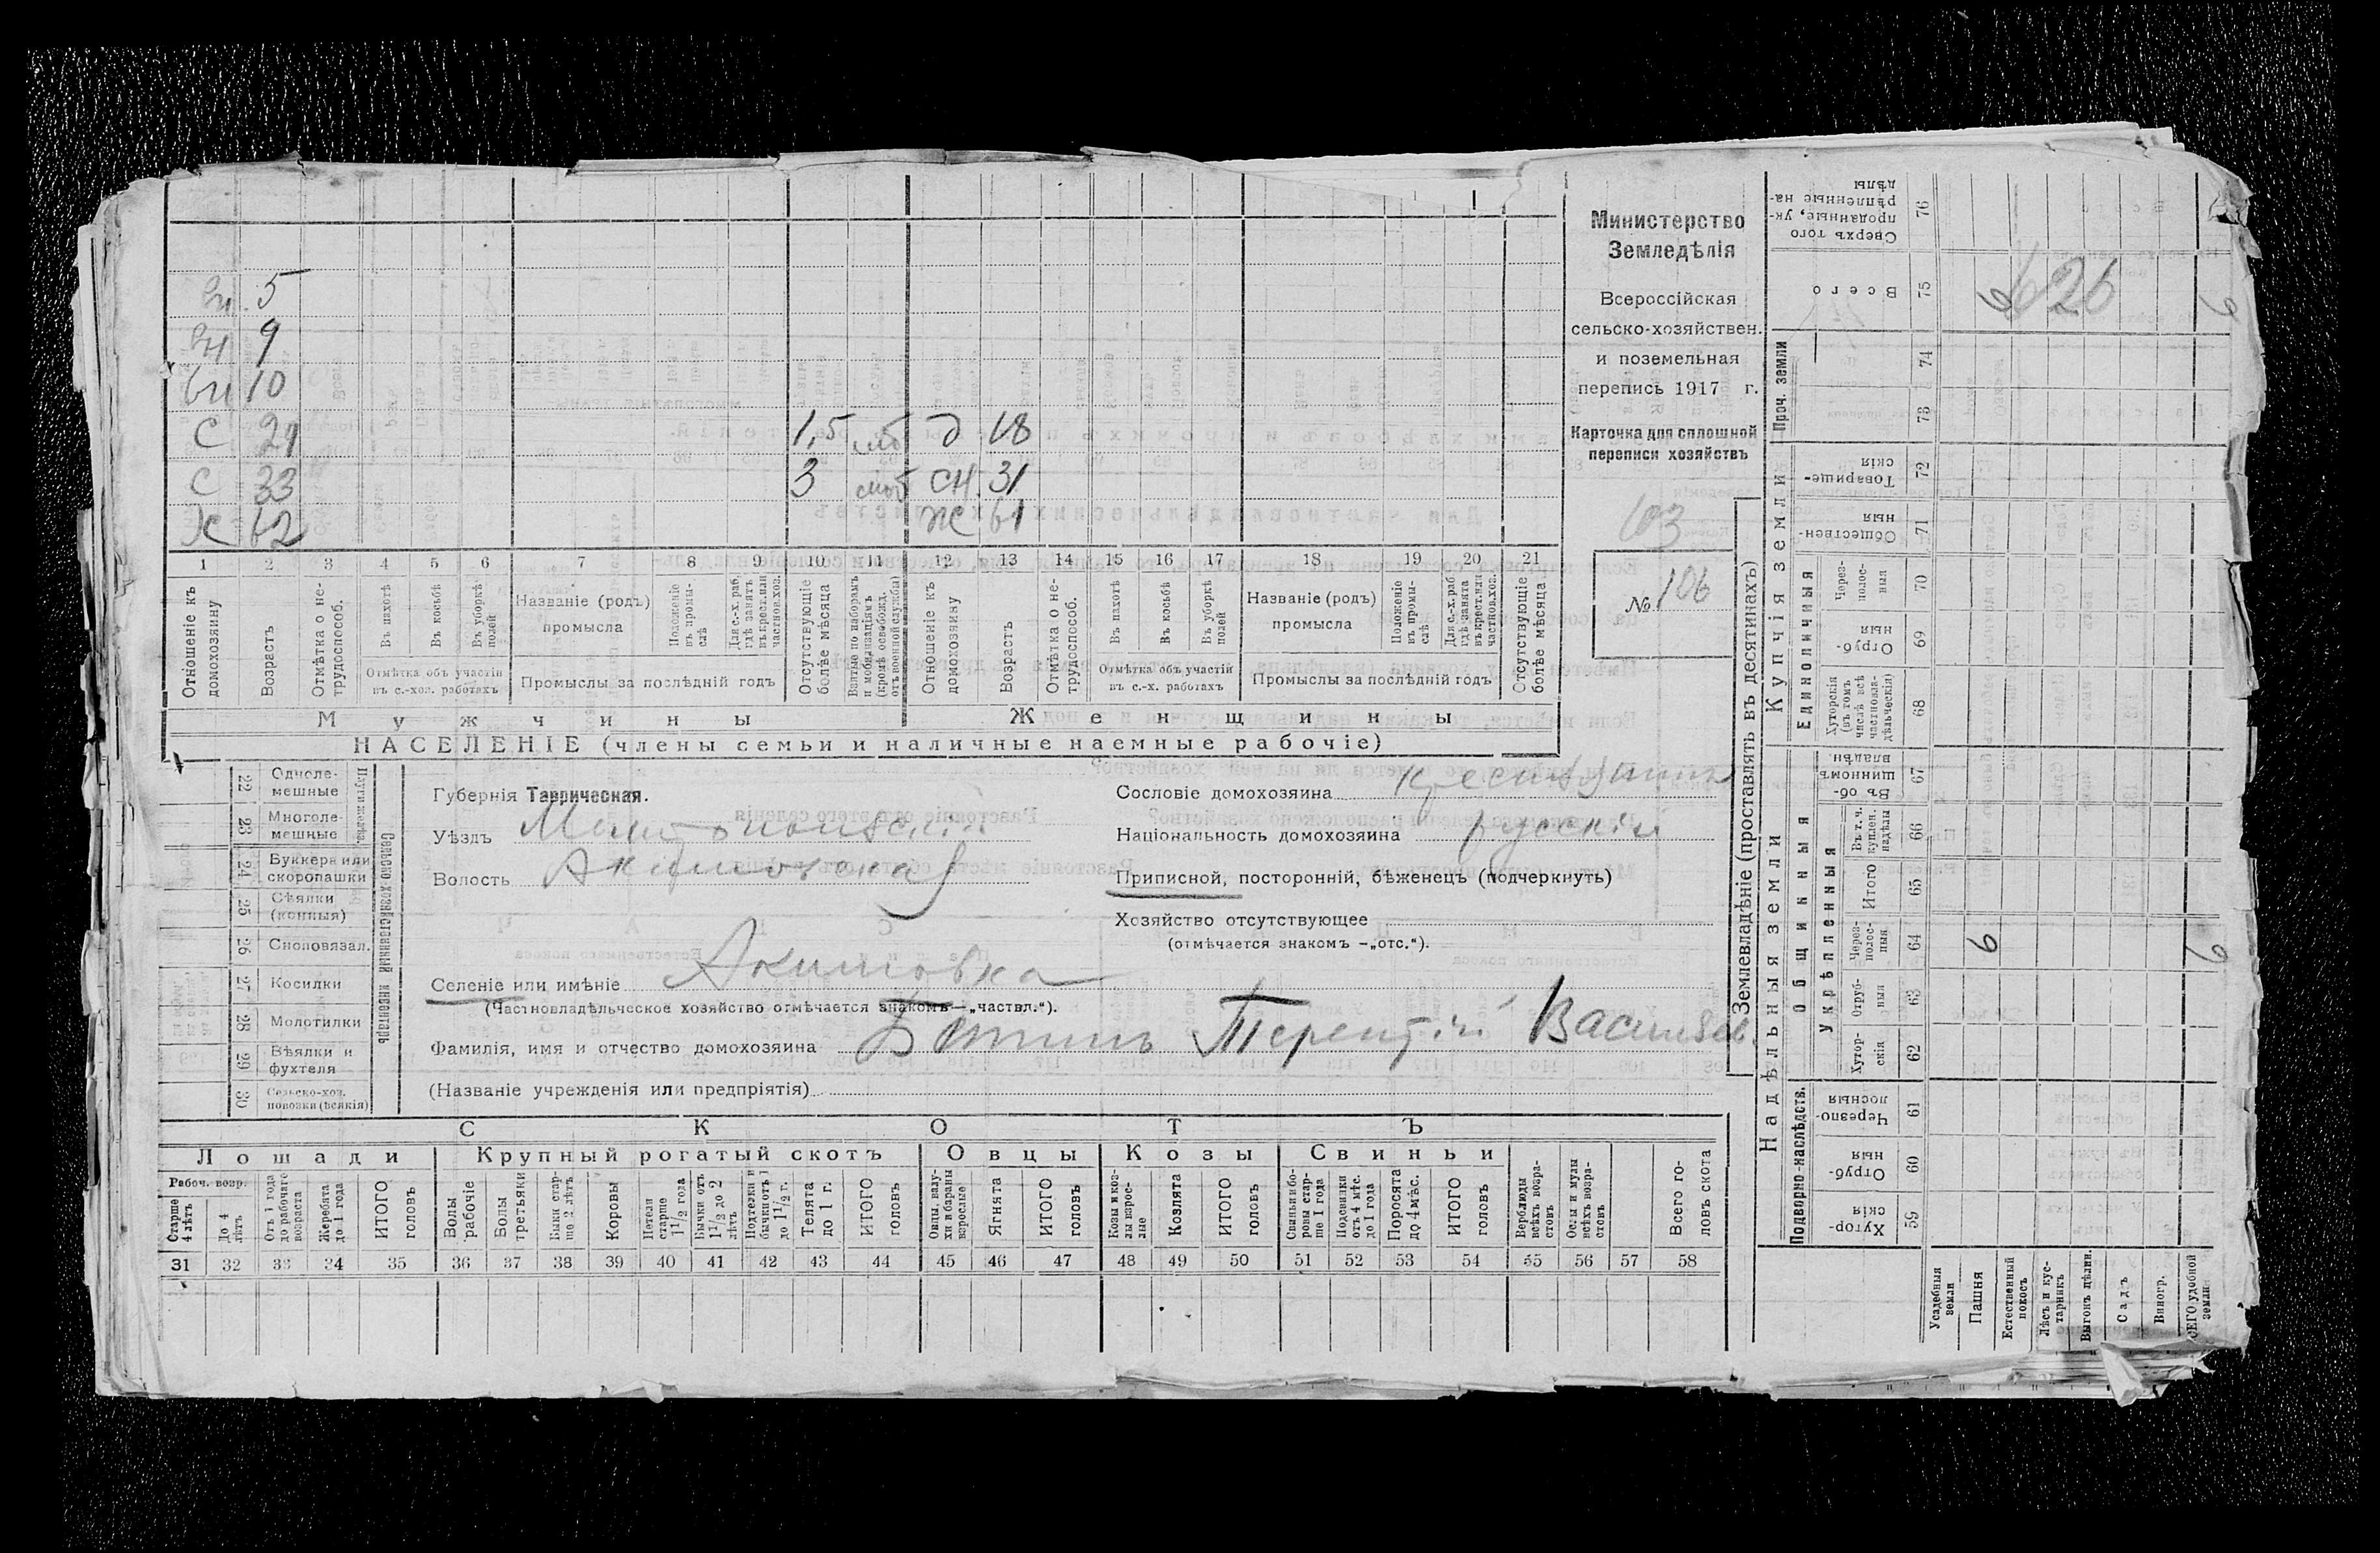 вн. 5
вн 9
вн 10
С 21 1,5 моб д 18
С 33 3 моб сн. 31
Х 62 Ж 61
1 2 3 4 5 6 7 8 9 10 11 12 13 14 15 16 17 18 19 20 21
Отношеніе къ домохозяину
Возрастъ
Отмѣтка о не-
трудоспособ.
Въ пахотѣ
Въ косьбѣ
Въ уборкѣ полей
Отмѣтка объ участіи
въ с.-хоз. работахъ
Названіе (родъ)
промысла
Положеніе въ промы-
слѣ
Для с.-х. раб. гдѣ занятъ въ крест. или частнов. хоз.
Промыслы за послѣдній годъ
Отсутствующіе болѣе мѣсяца
Взятые по наборамъ и мобилизаціямъ (кромѣ освобожд. отъ военной службы)
Отношеніе къ домохозяину
Возрастъ
Отмѣтка о не-
трудоспособ.
Въ пахотѣ
Въ косьбѣ
Въ уборкѣ полей
Отмѣтка объ участіи
въ с.-х. работахъ
Названіе (родъ)
промысла
Положеніе въ промы-
слѣ
Для с.-х. раб. гдѣ занята въ крест. или частнов. хоз.
Промыслы за послѣдній годъ
Отсутствующіе болѣе мѣсяца
Мужчины Женщины
НАСЕЛЕНІЕ (члены семьи и наличные наемные рабочіе)
Министерство
Земледѣлія
Всероссійская
сельско-хозяйствен.
и поземельная
перепись 1917 г.
Карточка для сплошной
переписи хозяйствъ
103
№ 106
22 Одноле-
мешные
23 Многоле-
мешные
24 Буккера или
скоропашки
25 Сѣялки
(конныя)
26 Сноповязал.
27 Косилки
28 Молотилки
29 Вѣялки и
фухтеля
30 Сельско-хоз.
повозки (всякія)
Сельско-хозяйственный инвентарь
Губернія Таврическая.
Уѣздъ Мелитопольскій
Волость Акимовская
Селеніе или имѣніе Акимовка
(Частновладѣльческое хозяйство отмѣчается знакомъ—„частвл.“).
Фамилія, имя и отчество домохозяина Терентій Васильев.
(Названіе учрежденія или предпріятія)
Сословіе домохозяина крестьянинъ
Національность домохозяина русскій
Приписной, посторонній, бѣженецъ (подчеркнуть)
Хозяйство отсутствующее
(отмѣчается знакомъ –„отс.“).
СКОТЪ
Лошади Крупный рогатый скотъ Овцы Козы Свиньи
Рабоч. возр.
Старше 4 лѣтъ
До 4 лѣтъ
Отъ 1 года до рабочаго возраста
Жеребята до 1 года
ИТОГО головъ
Волы рабочіе
Волы третьяки
Быки стар-
ше 2 лѣтъ
Коровы
Нетели старше 1 1/2 года
Бычки отъ 1 1/2 до 2 лѣтъ
Подтелки и бычки отъ 1 до 1 1/2 г.
Телята до 1 г.
ИТОГО головъ
Овцы, валу-
хи и бараны взрослые
Ягнята
ИТОГО головъ
Козы и коз-
лы взрос-
лые
Козлята
ИТОГО головъ
Свиньи и бо-
ровы стар-
ше 1 года
Подсвинки отъ 4 мѣс. до 1 года
Поросята до 4 мѣс.
ИТОГО головъ
Верблюды всѣхъ возра-
стовъ
Ослы и мулы всѣхъ возра-
стовъ
Всего го-
ловъ скота
31 32 33 34 35 36 37 38 39 40 41 42 43 44 45 46 47 48 49 50 51 52 53 54 55 56 57 58
Землевладѣніе (проставлять въ десятинахъ)
Надѣльныя земли
Купчія земли
Проч. земли
Подворно-наслѣдств.
Общинныя
Укрѣпленныя
Единоличныя
Сверхъ того проданные, ук-
рѣпленные на-
дѣлы 76
Всего 75 6 626 6
74
73
Товарище-
скія 72
Обществен-
ныя 71
Через-
полос-
ныя 70
Отруб-
ныя 69
Хуторскія (въ томъ числѣ всѣ частновла-
дѣльческія) 68
Въ об-
щинномъ владѣн. 67
Въ т. ч. куплен. надѣлы 66
Итого 65
Через-
полос-
ныя 64 6 6
Отруб-
ныя 63
Хутор-
скія 62
Черезпо-
лосныя 61
Отруб-
ныя 60
Хутор-
скія 59
Усадебныя земли
Пашня
Естественный покосъ
Лѣсъ и кус-
тарникъ
Выгонъ цѣлин.
Садъ
Виногр.
ВСЕГО удобной земли